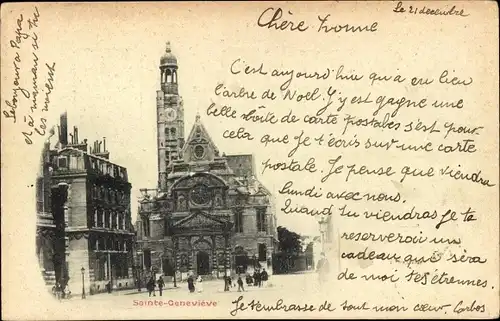 Le 21 decembre
Chère Yvonne
C'est aujourd'hui qu'a eu lieu
l'arbre de Noel. J'y est gagne une
belle boite de carte postables s'est pour
cela que je t'ecris sur une carte
postale. Je pense que viendra
Lundi avec nous.
Quand tu viendras je te
reserverois un
cadeau que sera
de moi tes étrennes.
Je t'embrasse de tout mon cœur. Carlos
Le bonjour a Papa
et à maman si tu
les voient
Sainte-Geneviève